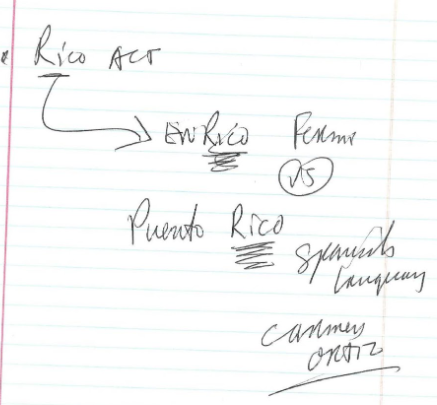 Rico ACT
ENRICO Fermi
VS
Puerto Rico
Spanish
Language
Carmen
ORTIZ